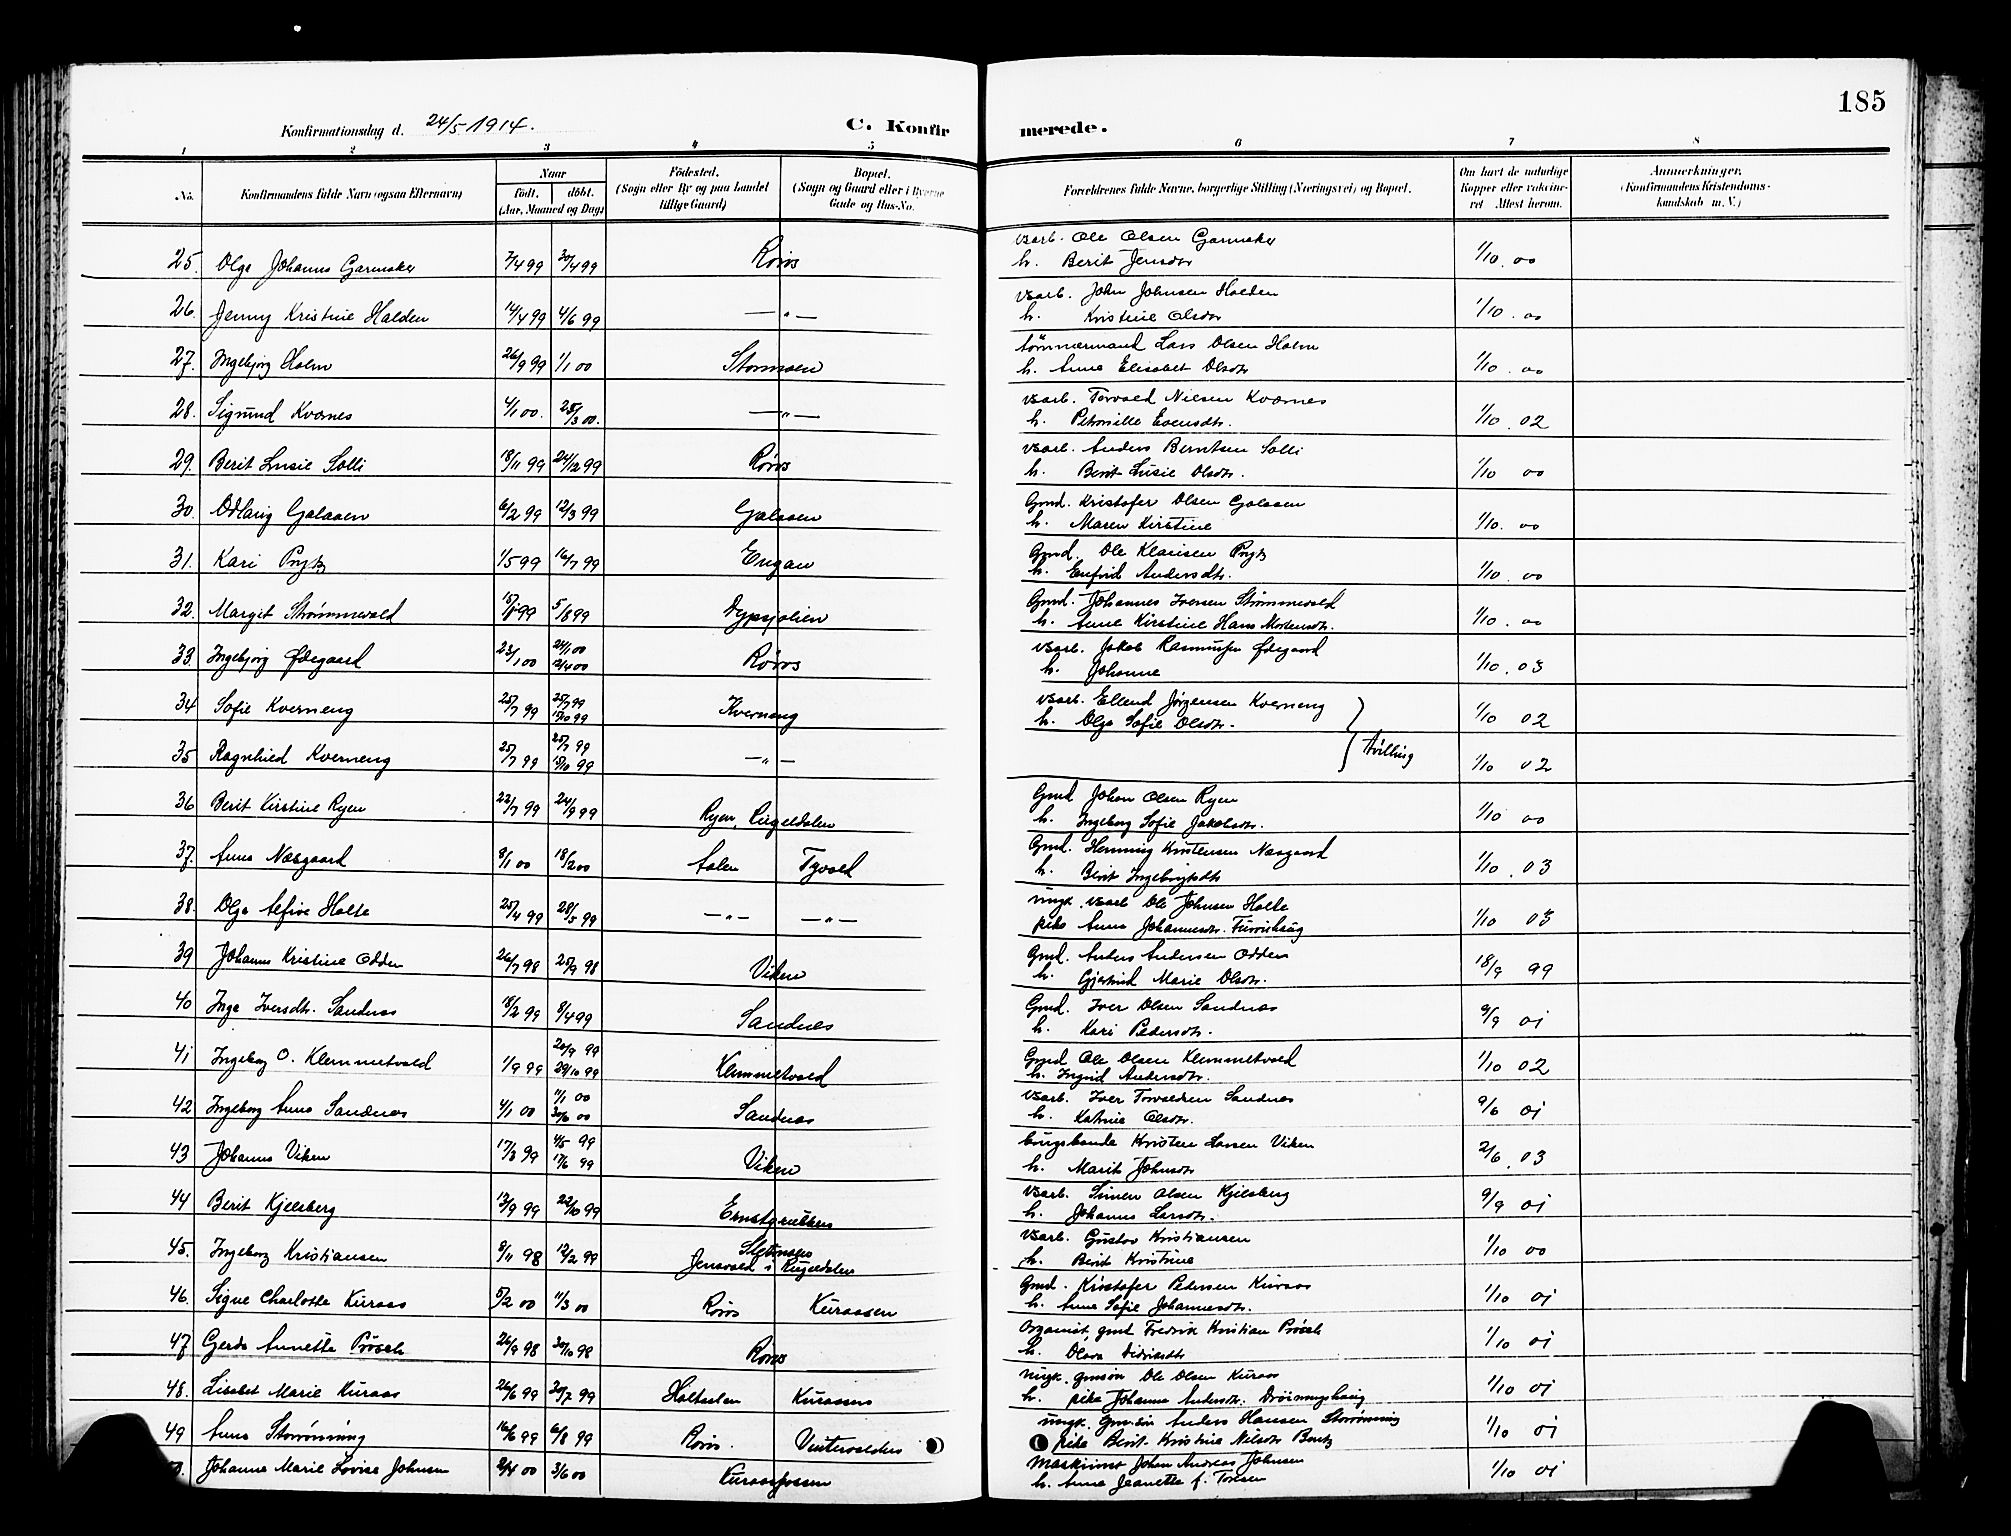 185
Konfirmationsdag d. 24/5 1914.
C. Konfirmerede.
1 2 3 4 5 6 7 8
No.
Konfirmandens fulde Navn (ogsaa Efternavn)
Naar
födt. döbt.
(Aar, Maaned og Dag)
Födested.
(Sogn eller By og paa Landet
tillige Gaard)
Bopæl.
(Sogn og Gaard eller i Byerne
Gade og Hus-No.
Forældrenes fulde Navne, borgerlige Stilling (Næringsvei) og Bopæl.
Om havt de naturlige
Kopper eller vaccine-
ret Attest herom.
Anmerkninger.
(Konfirmandens Kristendoms-
kundskab m. V.)
25. Olga Johanna Garmaker 7/4 99 30/4 99 Røros Varb. Ole Olsen Garmaker 1/10 . 00
h. Berit Jensdtr
26. Jenny Kristine Halden 14/4 99 4/6 99 —"— Varb. John Johnsen Halden 1/10 . 00
h. Kristine Olsdtr
27. Ingebjørg Holm 26/9 99 1/1 00 Stormoen tømmermand Lars Olsen Holm 1/10 . 00
h. Anna Elisabet Olsdtr
28. Sigrund Kvernes 4/1 00. 25/3 00. —"— Varb. Torvald Nielsen Kvernes 1/10 . 02
h. Petronille Evensdtr.
29. Berit Lusie Solli 18/11 99 24/12 99 Røros Varb. Anders Berntsen Solli 1/10 00
h. Berit Lusie Olsdtr.
30. Oddlaug Galaaen 6/2 99 12/3 99 Galaaen Gmd. Kristofer Olsen Galaaen 1/10. 00
h. Maren Kirstine
31. Kari Prytz 1/5 99 16/7 99 Engan Gmd. Ole Klausen Prytz 1/10 . 00
h. Enfrid Andersdtr.
32. Margit Strømmevold 99 5/8 99 Dypsjølien Gmd. Johannes Iversen Strømmevold 1/10 . 00
h. Anne Kirstine Hans Mortensdtr.
33. Ingebjørg Ødegaard 23/1 00 24/1 00 Røros Varb. Jakob Rasmussen Ødegaard 1/10 . 03
2/4 00 h. Johanne
34 Sofie Kverneng 25/7 99 25/7 99 Kverneng Varb. Ellend Jørgensen Kverneng 1/10 02
15/10 99 h. Olga Sofie Olsdtr.
tvilling
35 Ragnhild Kverneng 25/7 99 25/7 99 —"— 1/10 02
15/10 99
36 Berit Kirstine Ryen 22/7 99 24/9 99 Ryen, Rugeldalen Gmd Johan Olsen Ryen 1/10 00
h. Ingeborg Sofie Jakobsdtr.
37. Anna Næsgaard 8/1 00 18/2 00 Aalen Tyvold Gmd. Henning Kristensen Næsgaard 1/10 . 03
h. Berit Ingebrigtsdtr
38. Olga Alfive Holte 25/4 99 28/5 99 —"— —"— ungk. Varb Ole Johnsen Holte 1/10 03
pike Anna Johannesdtr. Furuhaug
39 Johanna Kristine Odden 26/7 98 25/9 98 Viken Gmd. Anders Andersen Odden 18/9 99
h. Gjertrud Marie Olsdtr.
40 Inga Iversdtr. Sandnes 18/2 99 9/4 99 Sandnes Gmd. Iver Olsen Sandnes 9/9 01
h. Kari Pedersdtr.
41 Ingeborg O. Klemmetvold 1/9 99 20/9 99 Klemmetvold Gmd Ole Olsen Klemmetvold 1/10 02
29/10 99 h. Ingrid Andersdtr.
42 Ingeborg Anna Sandnes 4/1 00 11/1 00 Sandnes Varb. Iver Torvaldsen Sandnes 9/6 01
30/6 00 h. Katrine Olsdtr.
43 Johanna Viken 17/3 99 4/5 99 Viken brugsbonde Kristen Larsen Viken 2/6 . 03
17/6 99 h. Marit Johnsdtr
44 Berit Kjelsberg 13/9 99 22/10 99 Ernstgrubben Varb. Simen Olsen Kjelsberg 9/9 01
h. Johanna Larsdtr.
45. Ingeborg Kristiansen 9/11 98 12/2 99 Jensvold i Rugeldalen Varb. Gustav Kristiansen 1/10 00
h. Berit Kristine
46. Signe Charlotte Kuraas 5/2 00 11/3 00 Røros Kuraasen Gmd. Kristofer Petersen Kuraas 1/10 01
h. Anna Sofie Johannesdtr.
47 Gerda Annette Prøsch 26/9 98 30/10 98 Røros Organist, gmd Fredrik Kristian Prøsch 1/10 01
h. Olava Didriksdtr
48. Lisabet Marie Kuraas 26/6 99 30/7 99 Holtaalen Kuraasen ungk. gmsøn Ole Olsen Kuraas 1/10 01
h. pike Johanna Andersdtr. Drøiningshaug
49 Anna Storrønning 16/6 99 6/8 99 Røros. Vintervolden ungk. Gm.søn Anders Hansen Storrønning 1/10 01
pike Berit Kristine Nilsdtr Bentz
Johanna Marie Lovise Johnsen 2/4 00 3/6 00 Kuraasfossen Maskinist Johan Andreas Johnsen 1/10 01
h. Anna Jeanette f. Torsen